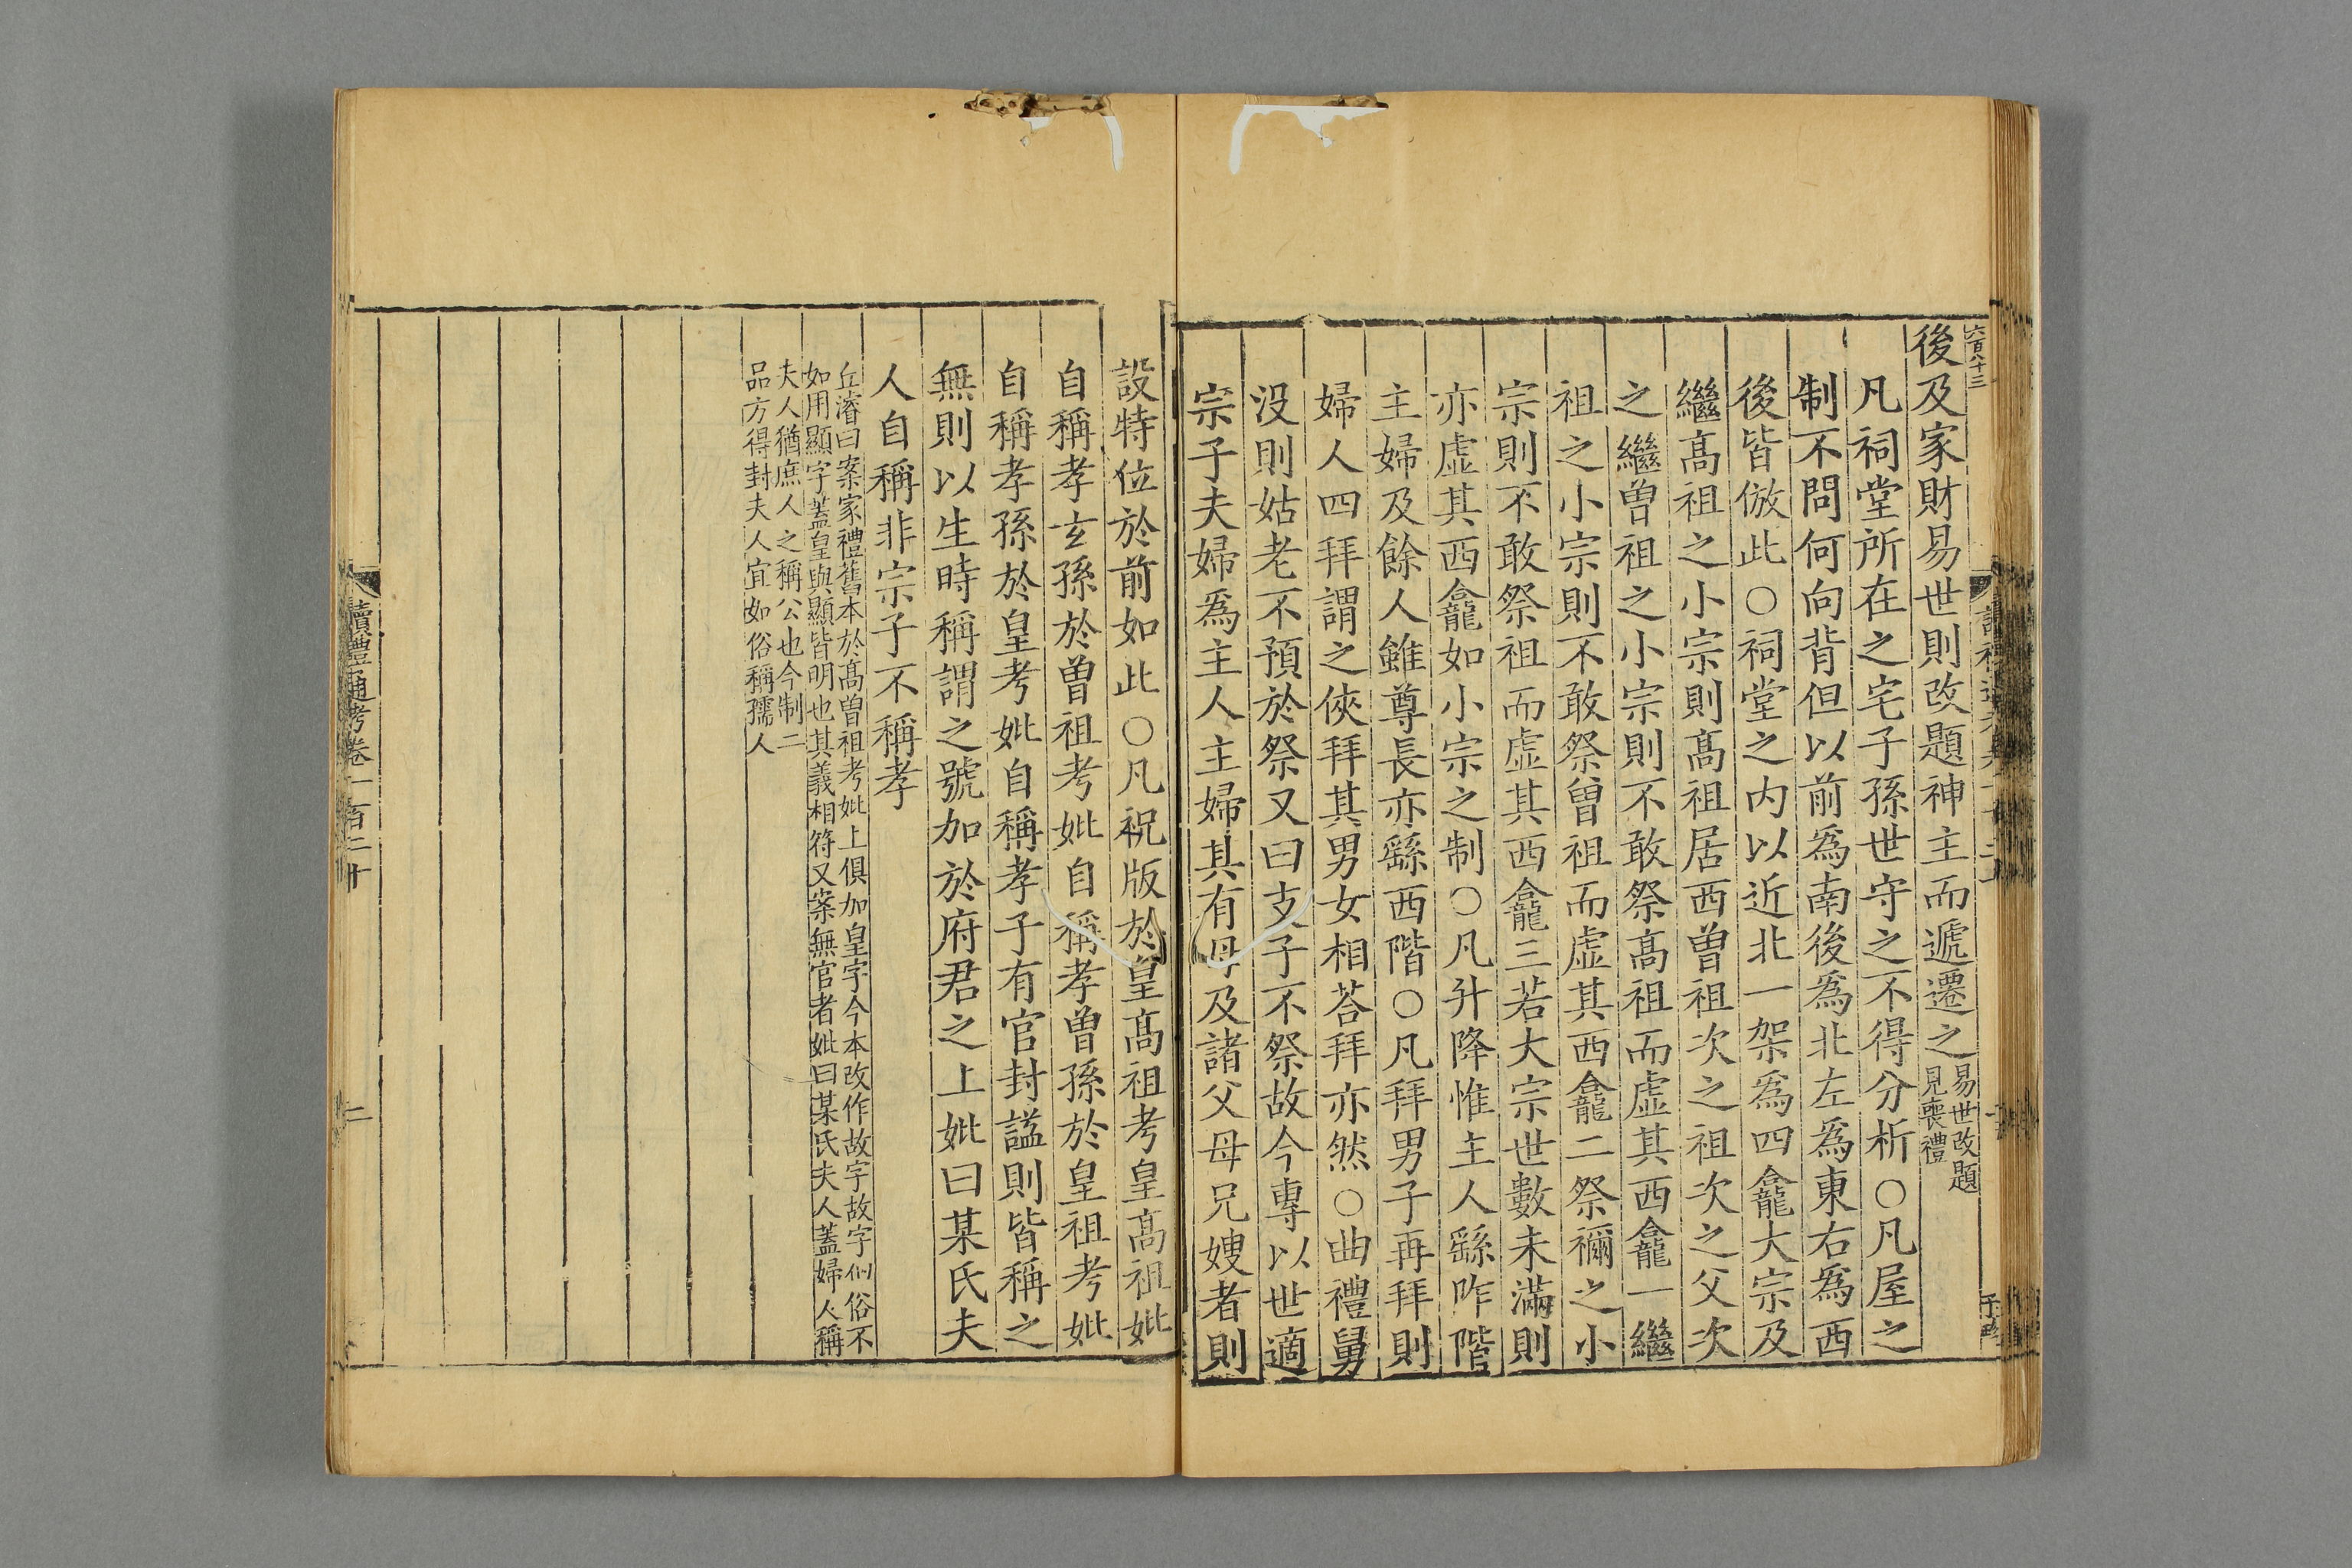 六百八十三
後及家財易世則改題神主而遞遷之易世改題見喪禮
凡祠堂所在之宅子孫世守之不得分析○凡屋之
制不問何向背但以前爲南後爲北左爲東右爲西
後皆倣此○祠堂之内以近北一架爲四龕大宗及
繼髙祖之小宗則髙祖居西曽祖次之祖次之父次
之繼曽祖之小宗則不敢祭髙祖而虚其西龕一繼
祖之小宗則不敢祭曽祖而虚其西龕二祭禰之小
宗則不敢祭祖而虚其西龕三若大宗世數未滿則
亦虚其西龕如小宗之制○凡升降惟主人繇阼階
主婦及餘人雖尊長亦繇西階○凡拜男子再拜則
婦人四拜謂之俠拜其男女相荅拜亦然○曲禮舅
没則姑老不預於祭又曰支子不祭故今專以世適
宗子夫婦爲主人主婦其有母及諸父母兄嫂者則
設特位於前如此○凡祝版於皇髙祖考皇髙祖妣
自稱孝玄孫於曽祖考妣自稱孝曽孫於皇祖考妣
自稱孝孫於皇考妣自稱孝子有官封謚則皆稱之
無則以生時稱謂之號加於府君之上妣曰某氏夫
人自稱非宗子不稱孝
丘濬曰案家禮舊本於髙曽祖考妣上俱加皇字今本改作故字故字似俗不
如用顯字蓋皇與顯皆明也其義相符又案無官者妣曰某氏夫人蓋婦人稱
夫人猶庶人之稱公也今制二
品方得封夫人宜如俗稱孺人
讀禮通考卷一百二十
二